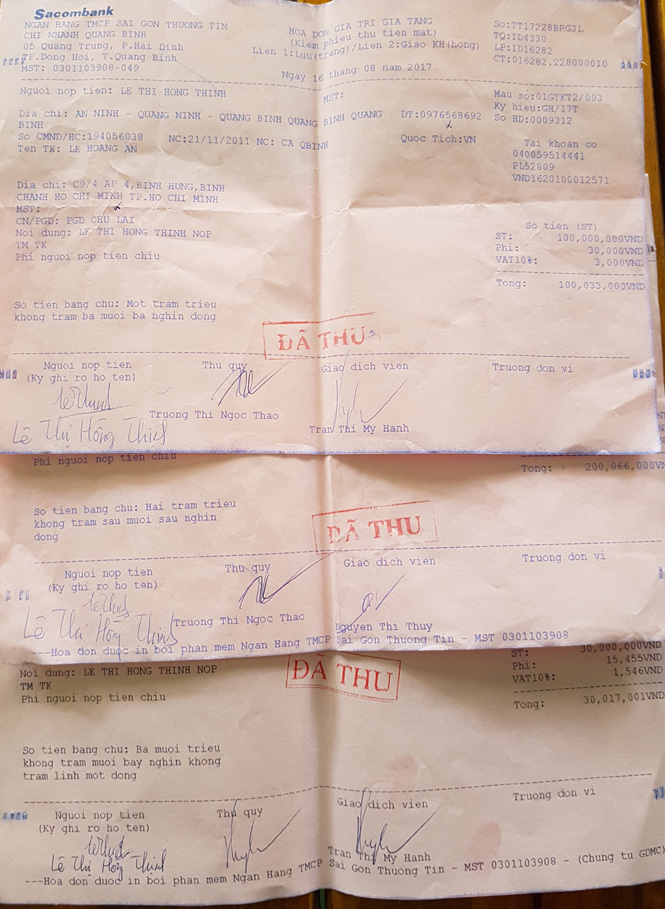 Sacombank
NGAN HANG TMCP SAI GON THUONG TIN
CHI NHANH QUANG BINH
05 Quang Trung, P.Hai Dinh
TP.Dong Hoi, T.Quang Binh
MST: 0301103908-049
HOA DON GIA TRI GIA TANG
(Kiem phieu thu tien mat)
Lien 1:Luu(trang)/Lien 2:Giao KH(hong)
Ngay 16 thang 08 nam 2017
SO:TT17228BRGJL
TQ:ID4330
LP:ID16282
CT:016282.228000010
Nguoi nop tien: LE THI HONG THINH
MST:
Mau so:01GTKT2/003
Ky hieu:GH/17T
So HD:0009312
Dia chi: AN NINH - QUANG NINH - QUANG BINH QUANG BINH QUANG
BINH
DT:0976568692
So CMND/HC:194056038 NC:21/11/2011 NC: CA QBINH
Quoc Tich:VN
Ten TK: LE HOANG AN
Tai khoan co
040059514441
PL52809
VND1620100012571
Dia chi: C9/4 AP 4,BINH HUNG,BINH
CHANH HO CHI MINH TP.HO CHI MINH
MST:
CN/PGD: PGD CHU LAI
Noi dung: LE THI HONG THINH NOP
TM TK
Phi nguoi nop tien chiu
So tien (ST)
ST: 100,000,000VND
Phi: 30,000VND
VAT10%: 3,000VND
Tong: 100,033,000VND
So tien bang chu: Mot tram trieu
khong tram ba muoi ba nghin dong
ĐÃ THU
Nguoi nop tien Thu quy Giao dich vien Truong don vi
(Ky ghi ro ho ten)
Truong Thi Ngoc Thao Tran Thi My Hanh
Lê Thị Hồng Thinh
Phi nguoi nop tien chiu
Tong: 200,066,000VN
So tien bang chu: Hai tram trieu
khong tram sau muoi sau nghin
dong
ĐÃ THU
Nguoi nop tien Thu quy Giao dich vien Truong don vi
(Ky ghi ro ho ten)
Lê Thị Hồng Thinh Truong Thi Ngoc Thao Nguyen Thi Thuy
---Hoa don duoc in boi phan mem Ngan Hang TMCP Sai Gon Thuong Tin - MST 0301103908
Noi dung: LE THI HONG THINH NOP
TM TK
Phi nguoi nop tien chiu
ĐÃ THU
ST: 30,000,000VND
Phi: 15,455VND
VAT10%: 1,546VND
Tong: 30,017,001VND
So tien bang chu: Ba muoi trieu
khong tram muoi bay nghin khong
tram linh mot dong
Nguoi nop tien Thu quy Giao dich vien Truong don vi
(Ky ghi ro ho ten)
Lê Thị Hồng Thinh
Tran Thi My Hanh
---Hoa don duoc in boi phan mem Ngan Hang TMCP Sai Gon Thuong Tin - MST 0301103908 - (Chung tu GDMC)